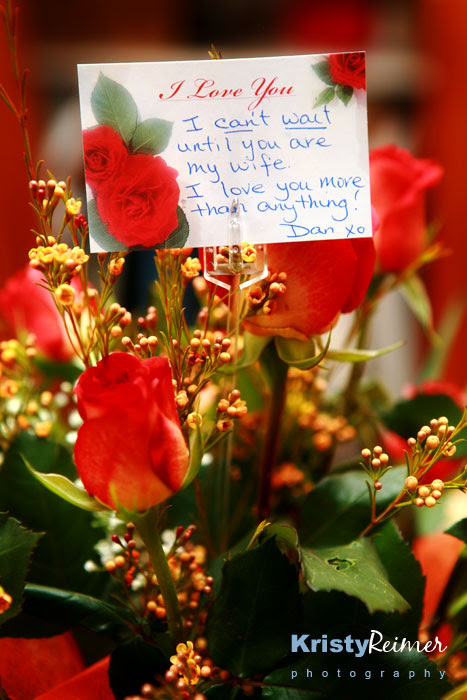 I Love You
I can't wait
until you are
my wife.
I love you more
than anything!
Dan xo
KristyReimer
photography